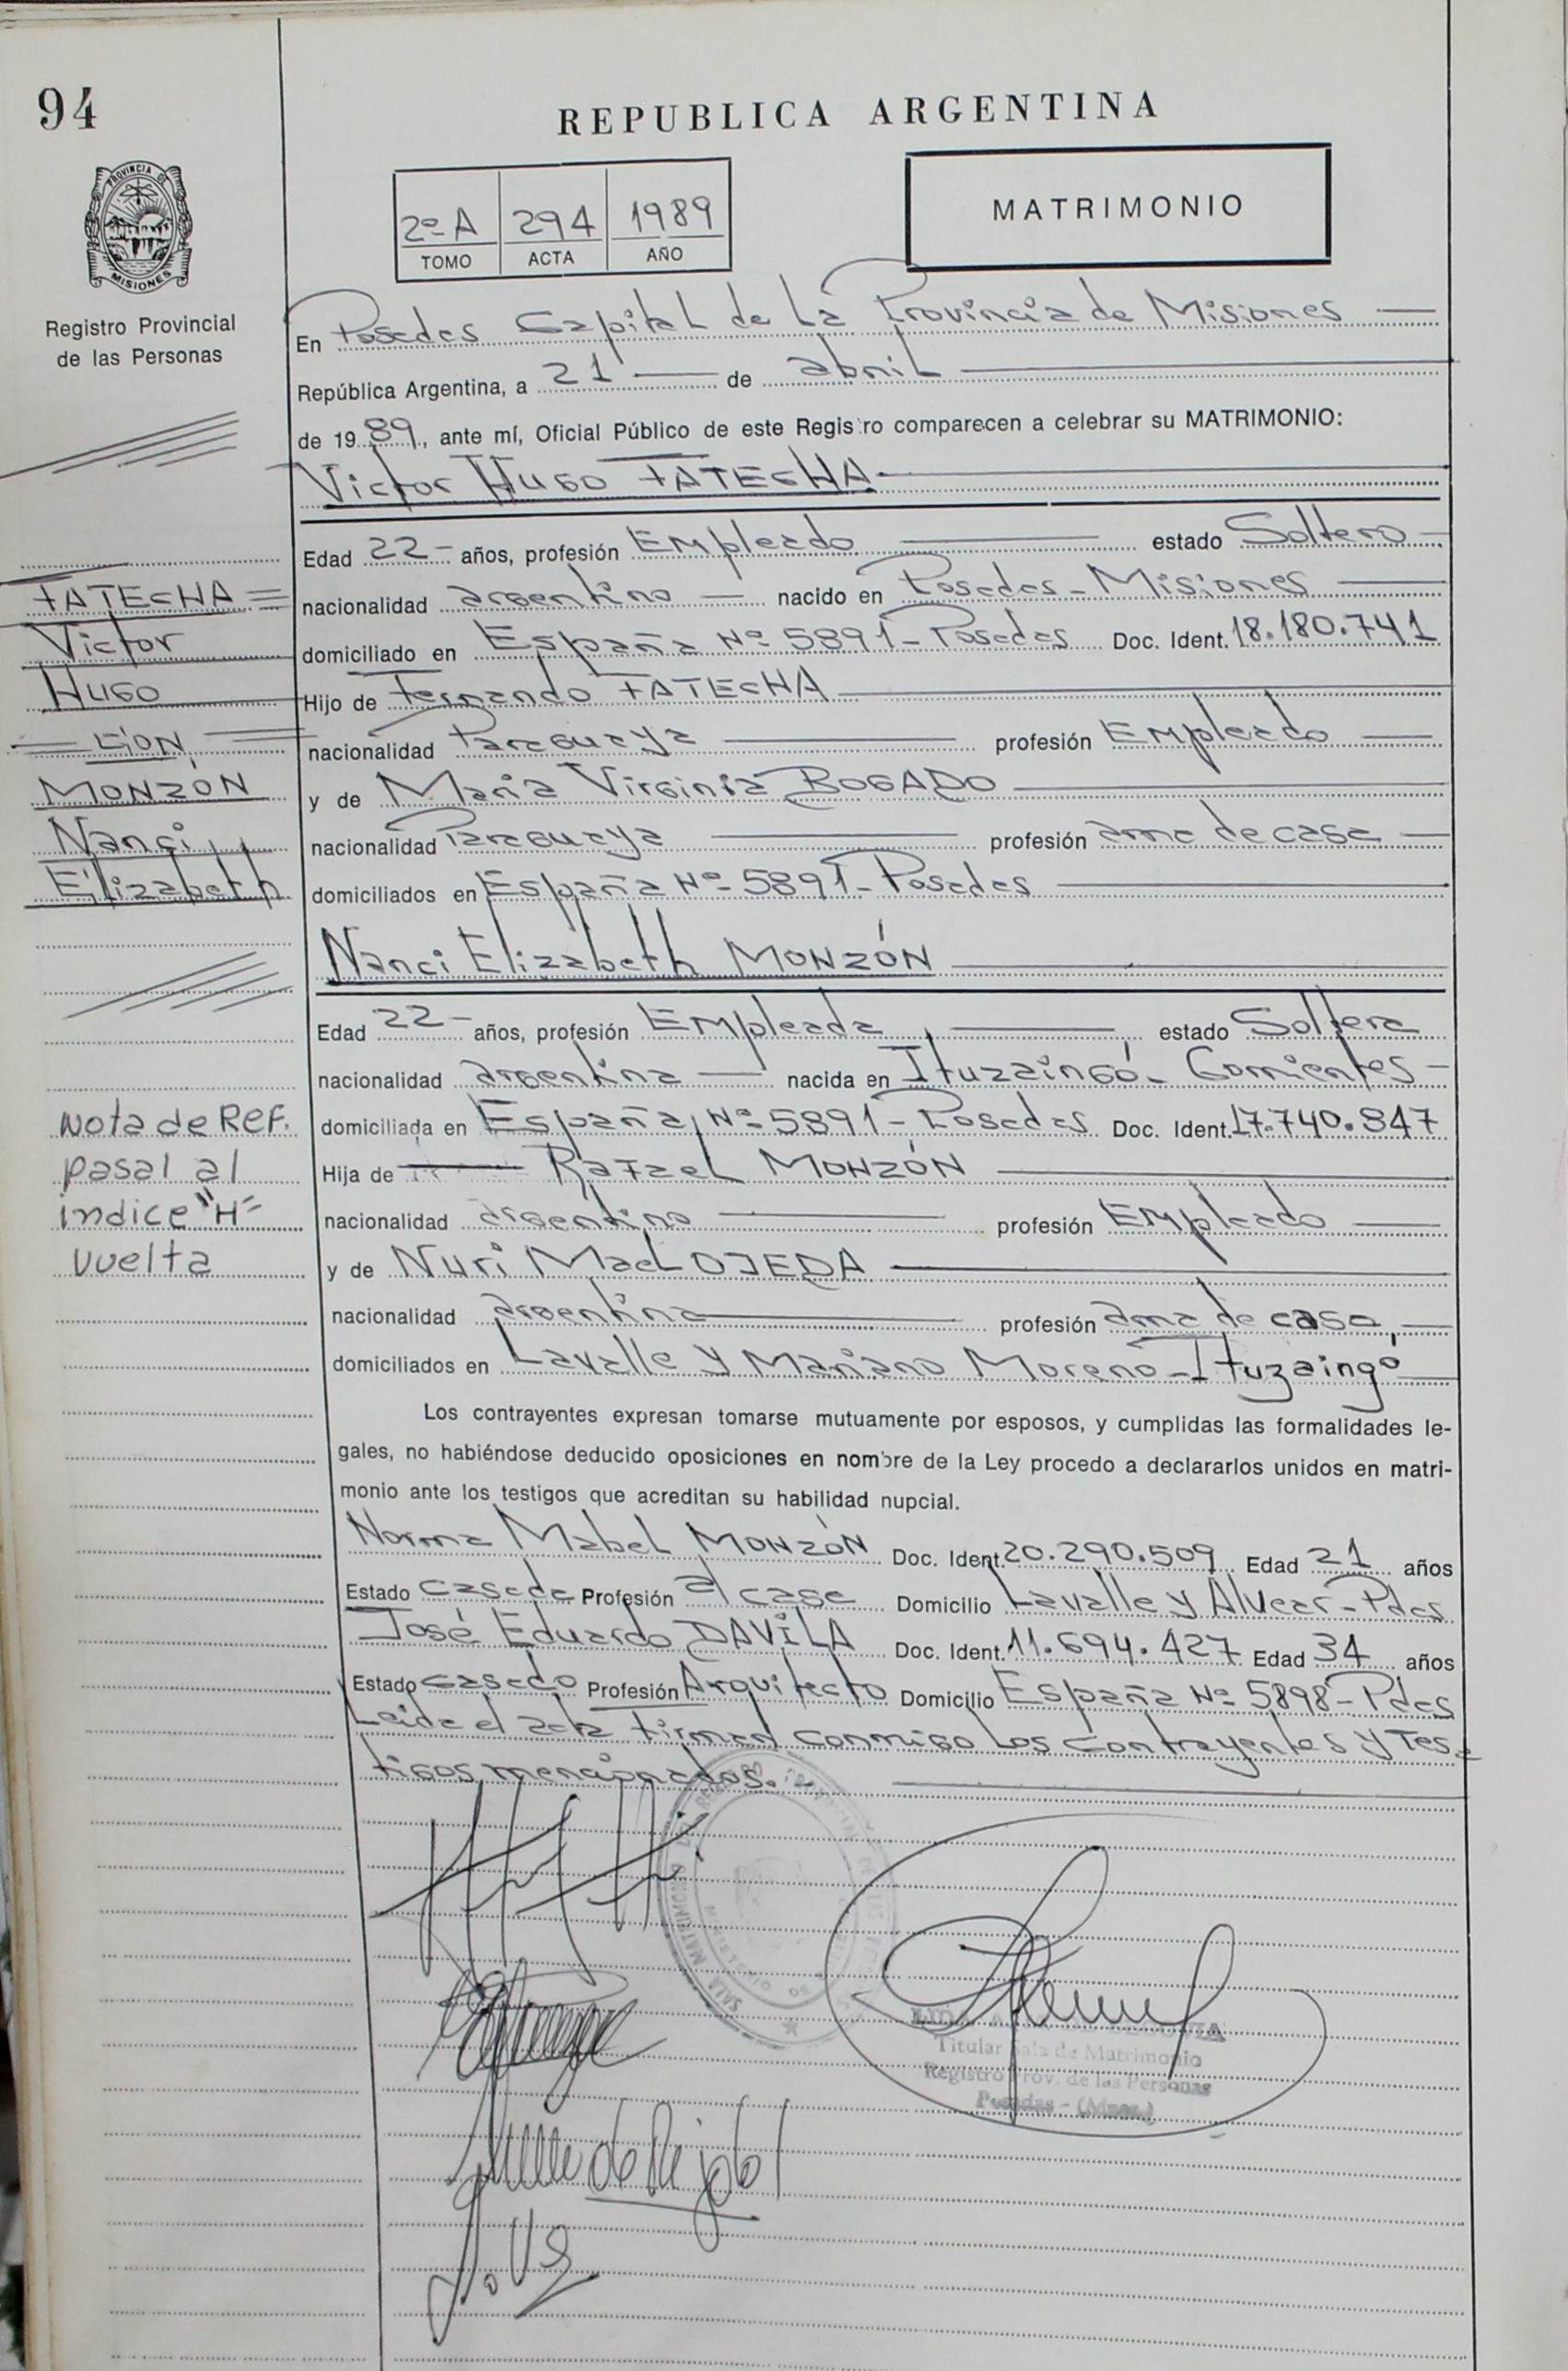 94
REPUBLICA ARGENTINA
PROVINCIA DE
MISIONES
Registro Provincial
de las Personas
2º A 294 1989
TOMO ACTA AÑO
MATRIMONIO
En Posadas Capital de La Provincia de Misiones
República Argentina, a 21 de abril
de 1989, ante mí, Oficial Público de este Registro comparecen a celebrar su MATRIMONIO:
Victor Hugo FATECHA
Edad 22 años, profesión Empleado estado Soltero
nacionalidad argentino nacido en Posadas - Misiones
domiciliado en España Nº 5891 - Posadas Doc. Ident. 18.180.741
Hijo de Fernando FATECHA
nacionalidad Paraguaya profesión Empleado
y de Maria Virginia BOGADO
nacionalidad Paraguaya profesión ama de casa
domiciliados en España Nº 5891 - Posadas
FATECHA
Victor
Hugo
CON
MONZÓN
Nanci
Elizabeth
Nanci Elizabeth MONZÓN
Edad 22 años, profesión Empleada estado Soltera
nacionalidad argentina nacida en Ituzaingó - Corrientes
domiciliada en España Nº 5891 - Posadas Doc. Ident. 17.740.847
Hija de Rafael MONZÓN
nacionalidad argentino profesión Empleado
y de Nuri Mael OJEDA
nacionalidad argentina profesión ama de casa
domiciliados en Lavalle y Mariano Moreno - Ituzaingó
Nota de REF.
pasal al
indice "H"
vuelta
Los contrayentes expresan tomarse mutuamente por esposos, y cumplidas las formalidades le-
gales, no habiéndose deducido oposiciones en nombre de la Ley procedo a declararlos unidos en matri-
monio ante los testigos que acreditan su habilidad nupcial.
Norma Mabel MONZÓN Doc. Ident. 20.290.509 Edad 21 años
Estado casada Profesión a/ casa Domicilio Lavalle y Alvear - Pdas
José Eduardo DAVILA Doc. Ident. 11.694.427 Edad 34 años
Estado casado Profesión Arquitecto Domicilio España Nº 5898 - Pdas
Leida el acta firman conmigo los contrayentes y tes-
tigos mencionados.-
SALA MATRIMONIOS
Titular Sala de Matrimonio
Registro Prov. de las Personas
Posadas - (Mnes.)